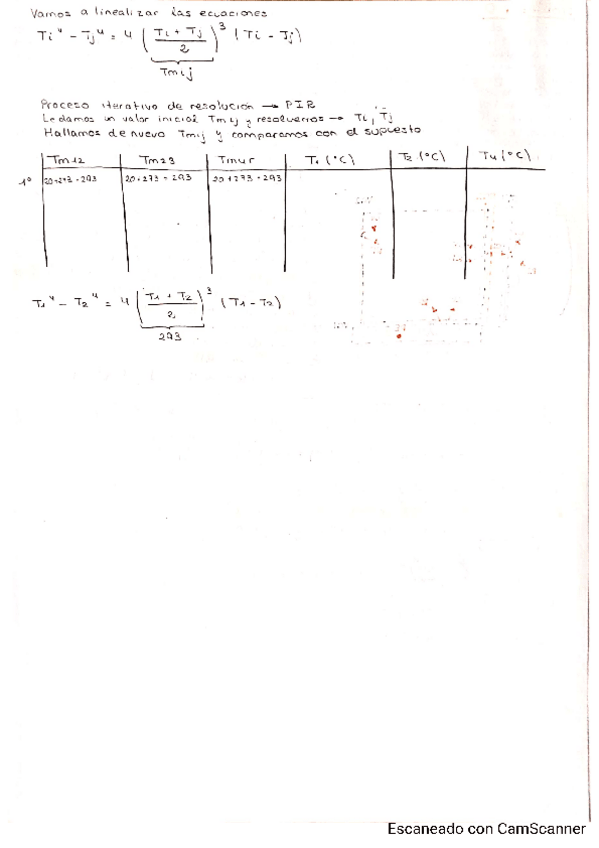 Vamos a linealizar las ecuaciones
Ti⁴ - Tj⁴ = 4 ((Ti + Tj)/2)³ (Ti - Tj)
Tmij
Proceso iterativo de resolución → PIR
Le damos un valor inicial Tmij y resolvemos → Ti, Tj
Hallamos de nuevo Tmij y comparamos con el supuesto
Tm12 Tm23 Tmur T1 (°C) T2 (°C) T4 (°C)
1º 20+273=293 20+273=293 20+273=293
T1⁴ - T2⁴ = 4 ((T1 + T2)/2)³ (T1 - T2)
293
Escaneado con CamScanner